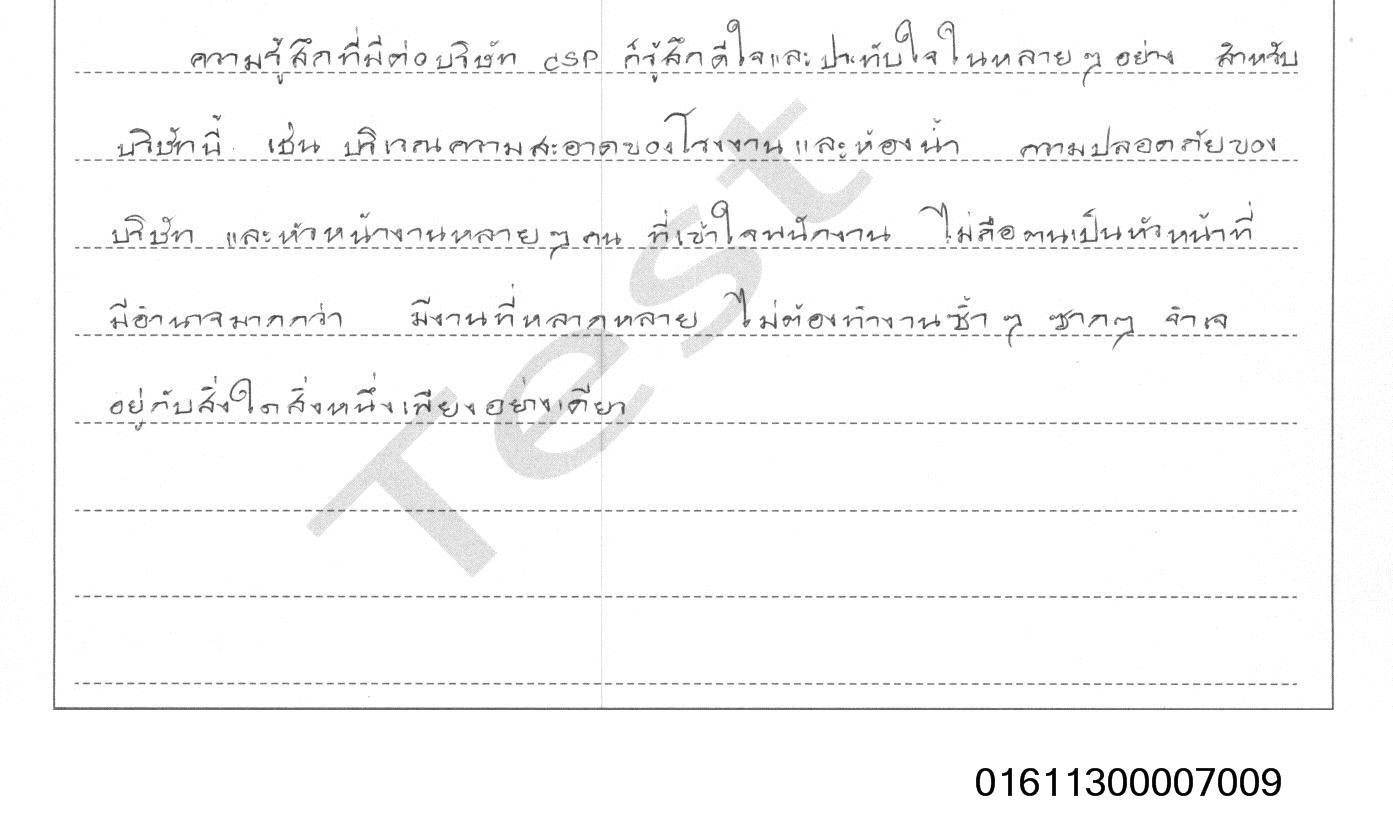 ความรู้สึกที่มีต่อบริษัท CSP ก็รู้สึกดีใจและประทับใจในหลายๆอย่าง สำหรับ
บริษัทนี้ เช่น บริเวณความสะอาดของโรงงานและห้องน้ำ ความปลอดภัยของ
บริษัท และหัวหน้างานหลายๆคน ที่เข้าใจพนักงาน ไม่ถือตนเป็นหัวหน้าที่
มีอำนาจมากกว่า มีงานที่หลากหลาย ไม่ต้องทำงานซ้ำๆ ซากๆ จำเจ
อยู่กับสิ่งใดสิ่งหนึ่งเพียงอย่างเดียว
Test
01611300007009